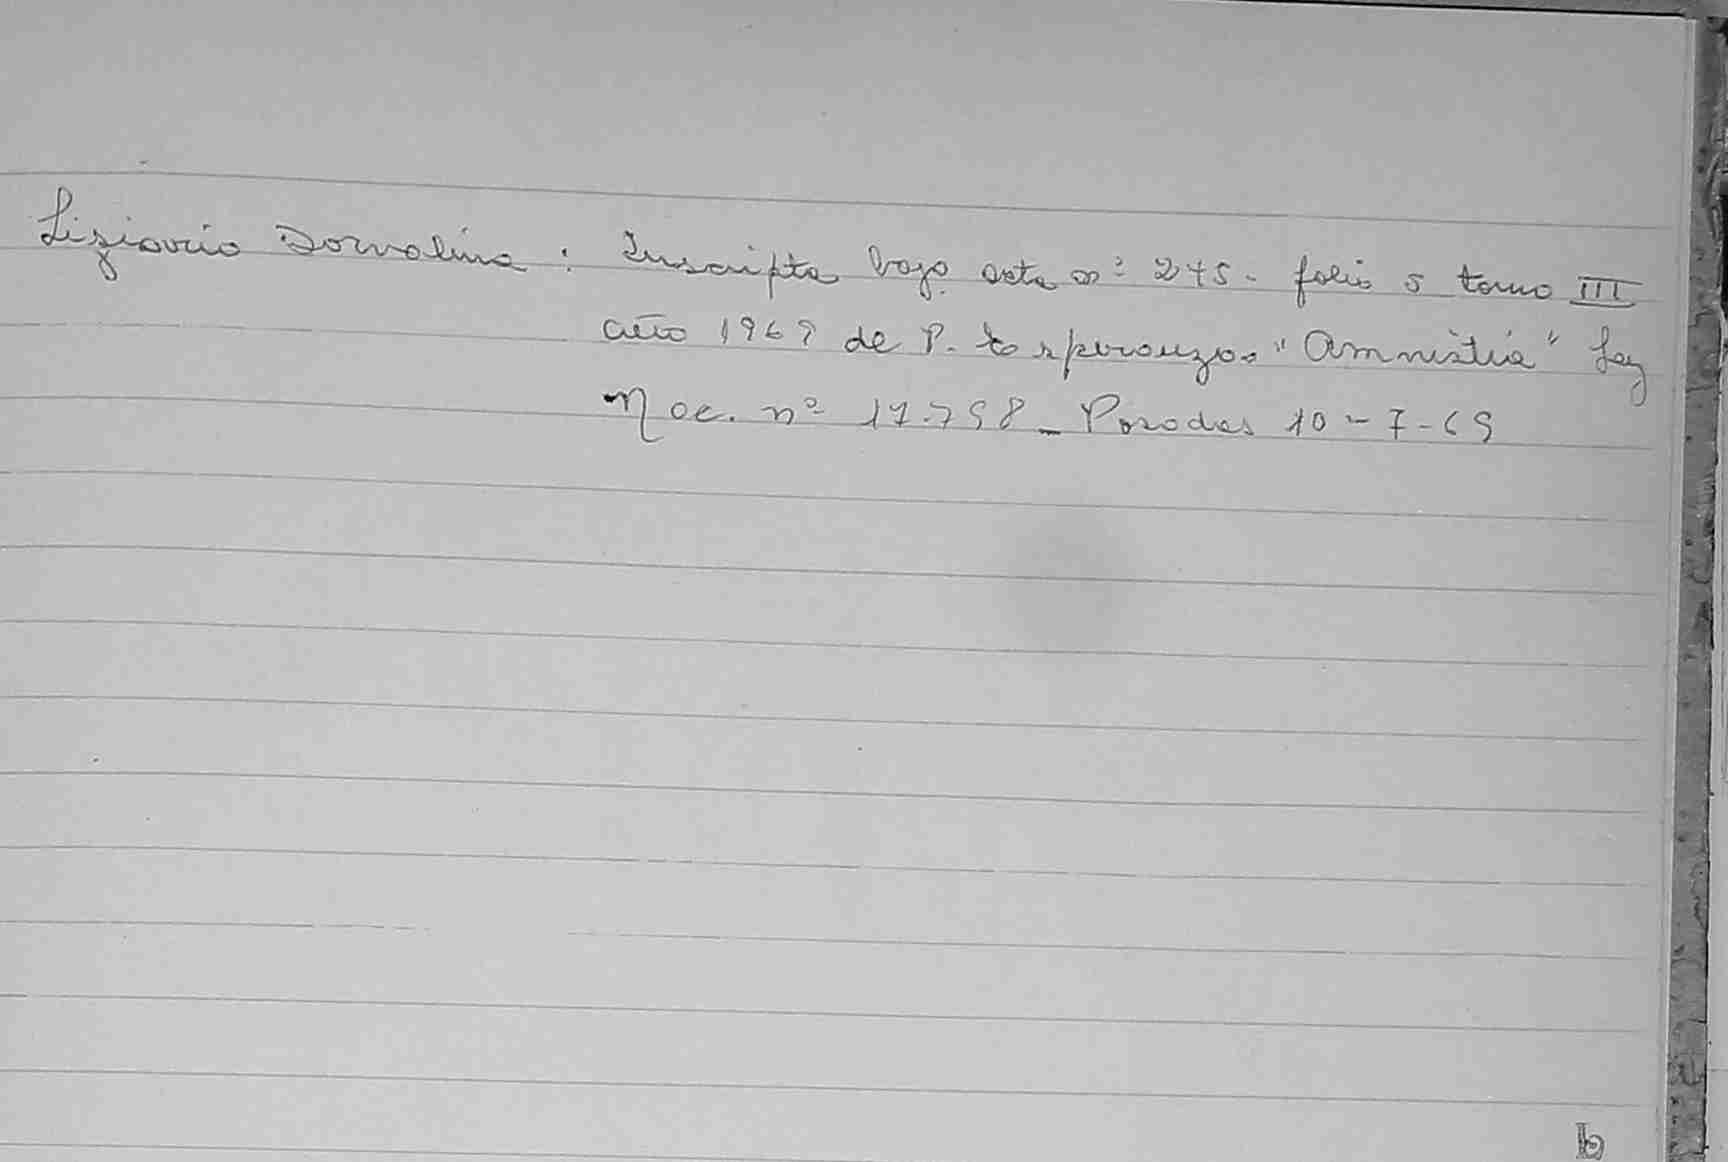 Liziario Dorvalina : Inscripta bajo acta nº 245 - folio 5 tomo III
año 1969 de P. Esperanza "Amnistia" Ley
Nac. nº 17.798 - Posadas 10 - 7 - 69
b